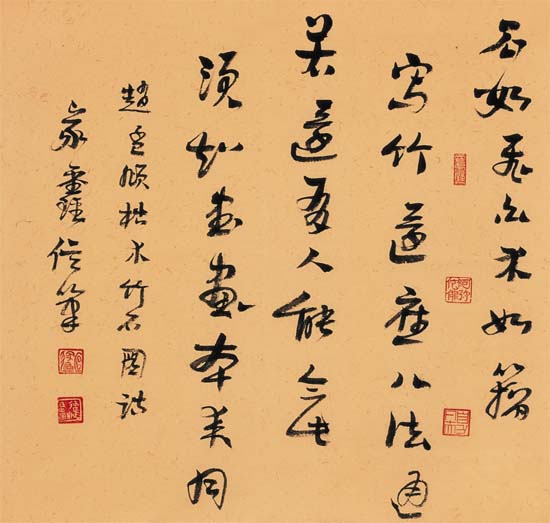 石如飛白木如籀
寫竹還應八法通
若還有人能會此
須知書畫本來同
趙孟頫枯木竹石圖詩
家鑫信筆